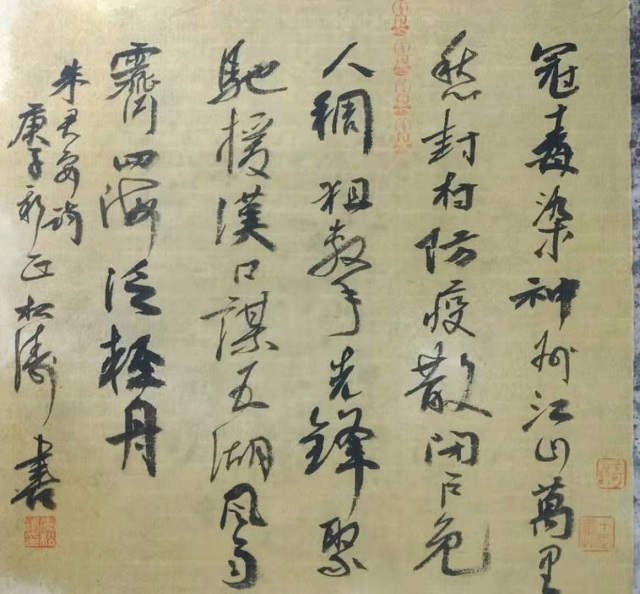 冠毒染神州江山萬里
愁封村防疫散閉户危
人稠狙擊手先鋒聚
馳援漢口謀五湖風雨
霽四海泛輕舟
朱君安詩
庚子新正松濤書